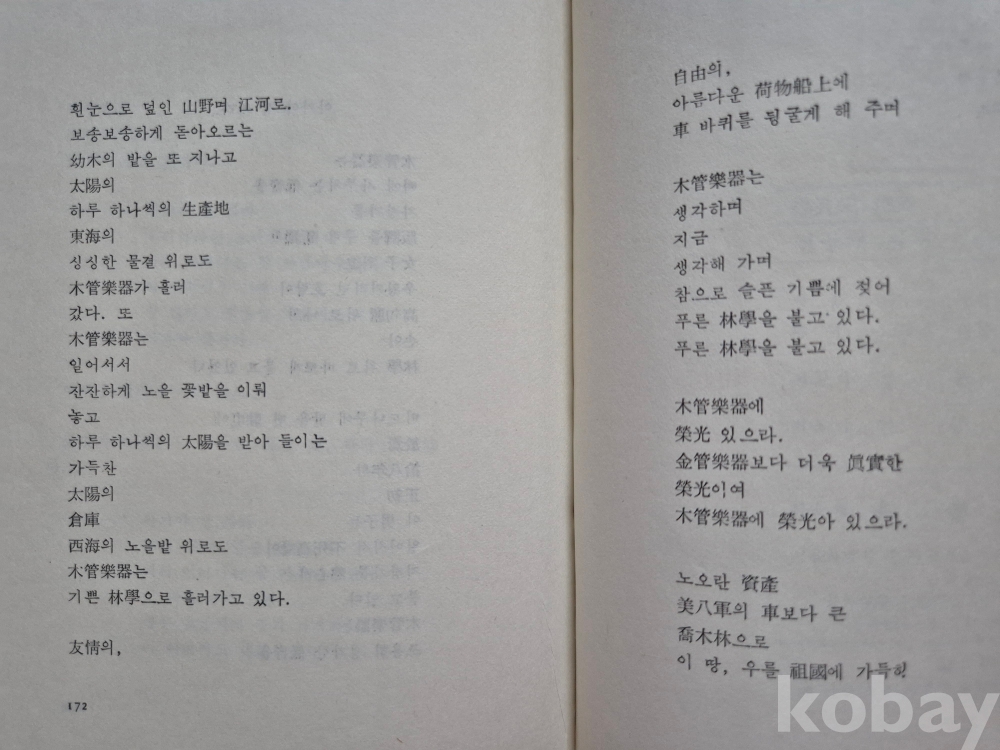 흰눈으로 덮인 山野며 江河로.
보송보송하게 돋아오르는
幼木의 밭을 또 지나고
太陽의
하루 하나씩의 生產地
東海의
싱싱한 물결 위로도
木管樂器가 흘러
갔다. 또
木管樂器는
일어서서
잔잔하게 노을 꽃밭을 이뤄
놓고
하루 하나씩의 太陽을 받아 들이는
가득찬
太陽의
倉庫
西海의 노을밭 위로도
木管樂器는
기쁜 林學으로 흘러가고 있다.
友情의,
172
自由의,
아름다운 荷物船上에
車 바퀴를 뒹굴게 해 주며
木管樂器는
생각하며
지금
생각해 가며
참으로 슬픈 기쁨에 젖어
푸른 林學을 불고 있다.
푸른 林學을 불고 있다.
木管樂器에
榮光 있으라.
金管樂器보다 더욱 眞實한
榮光이여
木管樂器에 榮光아 있으라.
노오란 資產
美八軍의 車보다 큰
喬木林으로
이 땅, 우를 祖國에 가득히
kobay